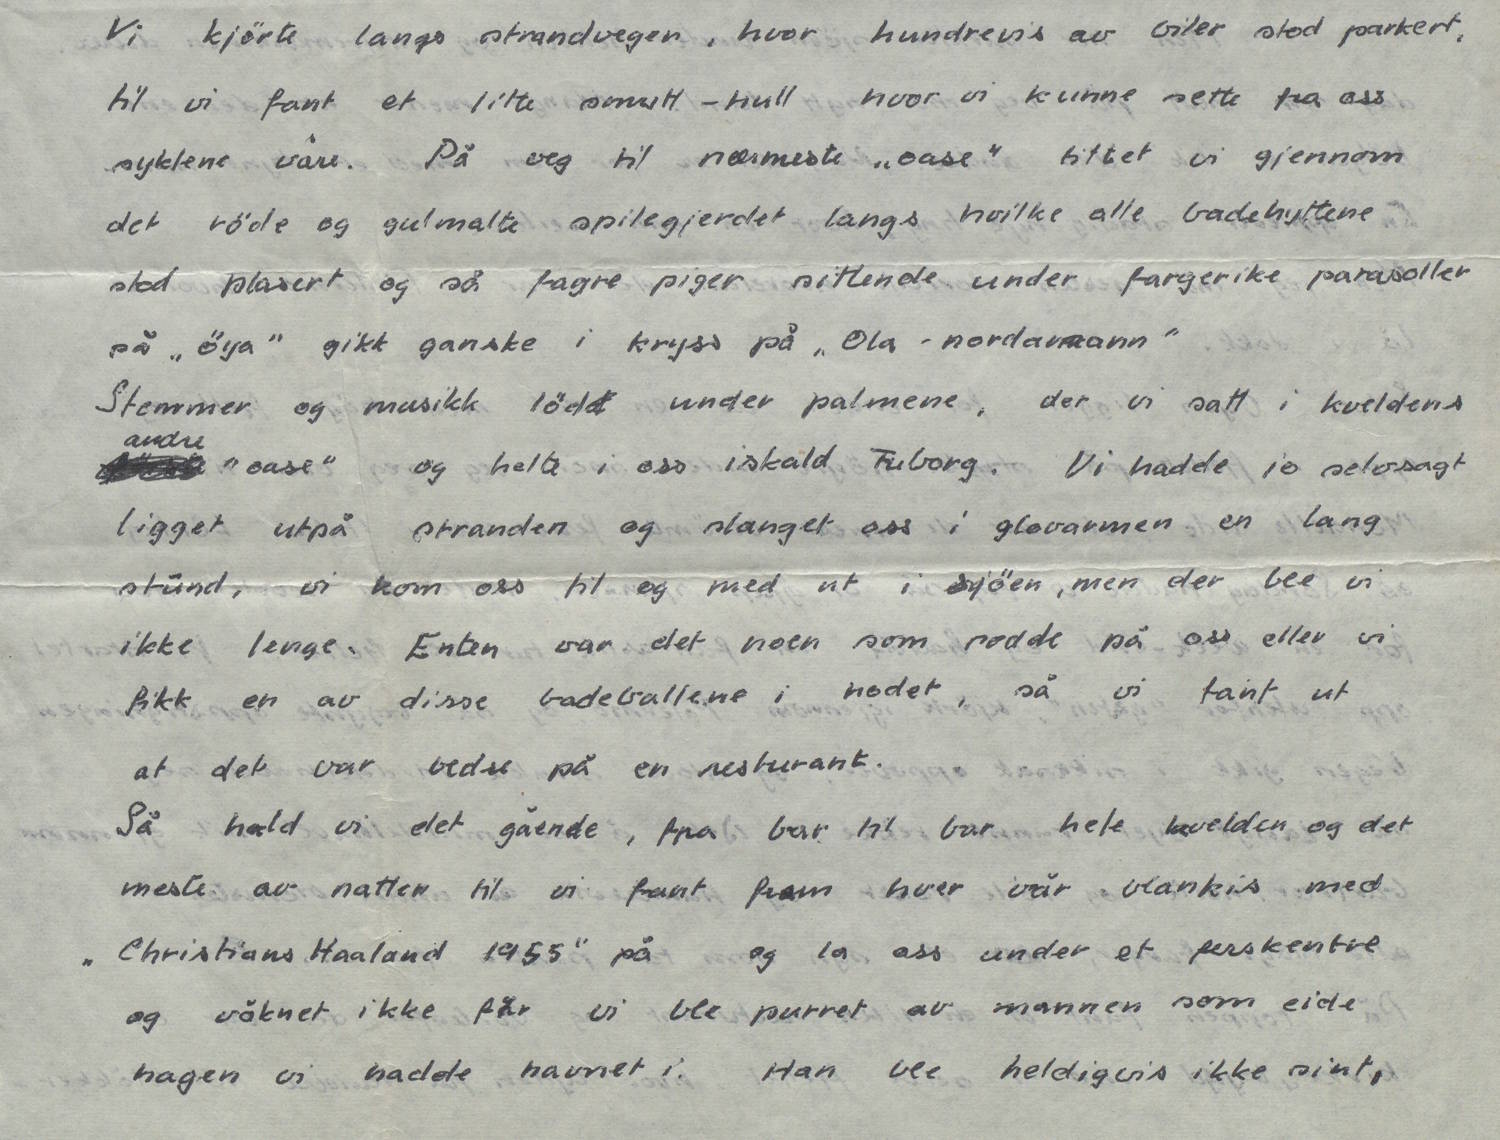 Vi kjörte langs strandvegen, hvor hundrevis av biler stod parkert,
til vi fant et lite smutt-hull hvor vi kunne sette fra oss
syklene våre. På veg til nærmeste „oase" tittet vi gjennom
det röde og gulmalte spilegjerdet langs hvilke alle badehyttene
stod plasert og så fagre piger sittende under fargerike parasoller
så „öya" gikk ganske i kryss på „Ola-nordamann"
Stemmer og musikk löd under palmene, der vi satt i kveldens
andre
"oase" og helte i oss iskald Tuborg. Vi hadde jo selvsagt
ligget utpå stranden og slanget oss i glovarmen en lang
stund, vi kom oss til og med ut i sjöen, men der ble vi
ikke lenge. Enten var det noen som rodde på oss eller vi
fikk en av disse badeballene i hodet, så vi fant ut
at det var bedre på en resturant.
Så hold vi det gående, fra bar til bar hele kvelden og det
meste av natten til vi fant fram hver vår blankis med
„Christians Haaland 1955" på og la oss under et ferskentre
og våknet ikke för vi ble purret av mannen som eide
hagen vi hadde havnet i. Han ble heldigvis ikke sint,